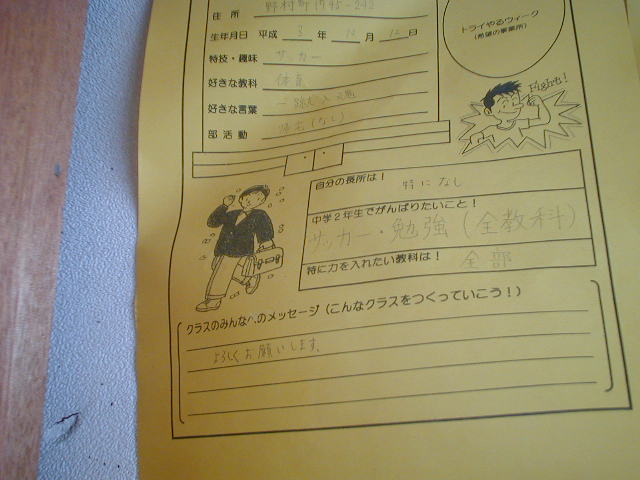 住所 野村町1745-242
生年月日 平成 3 年 12 月 12 日
特技・趣味 サッカー
好きな教科 体育
好きな言葉 一球入魂
部活動 帰宅(なし)
トライやるウィーク
(希望の事業所)
Fight!
自分の長所は! 特になし
中学2年生でがんばりたいこと!
サッカー・勉強(全教科)
特に力を入れたい教科は! 全部
クラスのみんなへのメッセージ(こんなクラスをつくっていこう!)
よろしくお願いします。